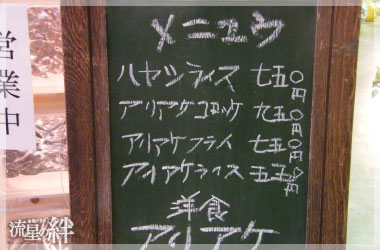 メニュウ
ハヤシライス 七五〇円
アリアケコロッケ 九五〇円
アリアケフライ 七五〇円
アリアケライス 五五〇円
洋食
アリアケ
営業中
流星の絆